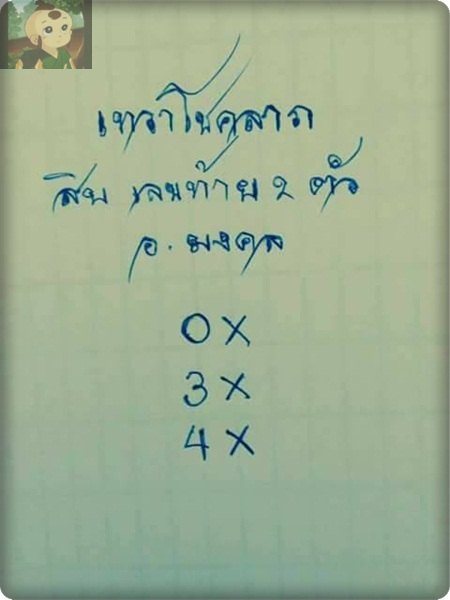 เทวาโชคลาภ
สิบ เลขท้าย 2 ตัว
อ. มงคล
0X
3X
4X